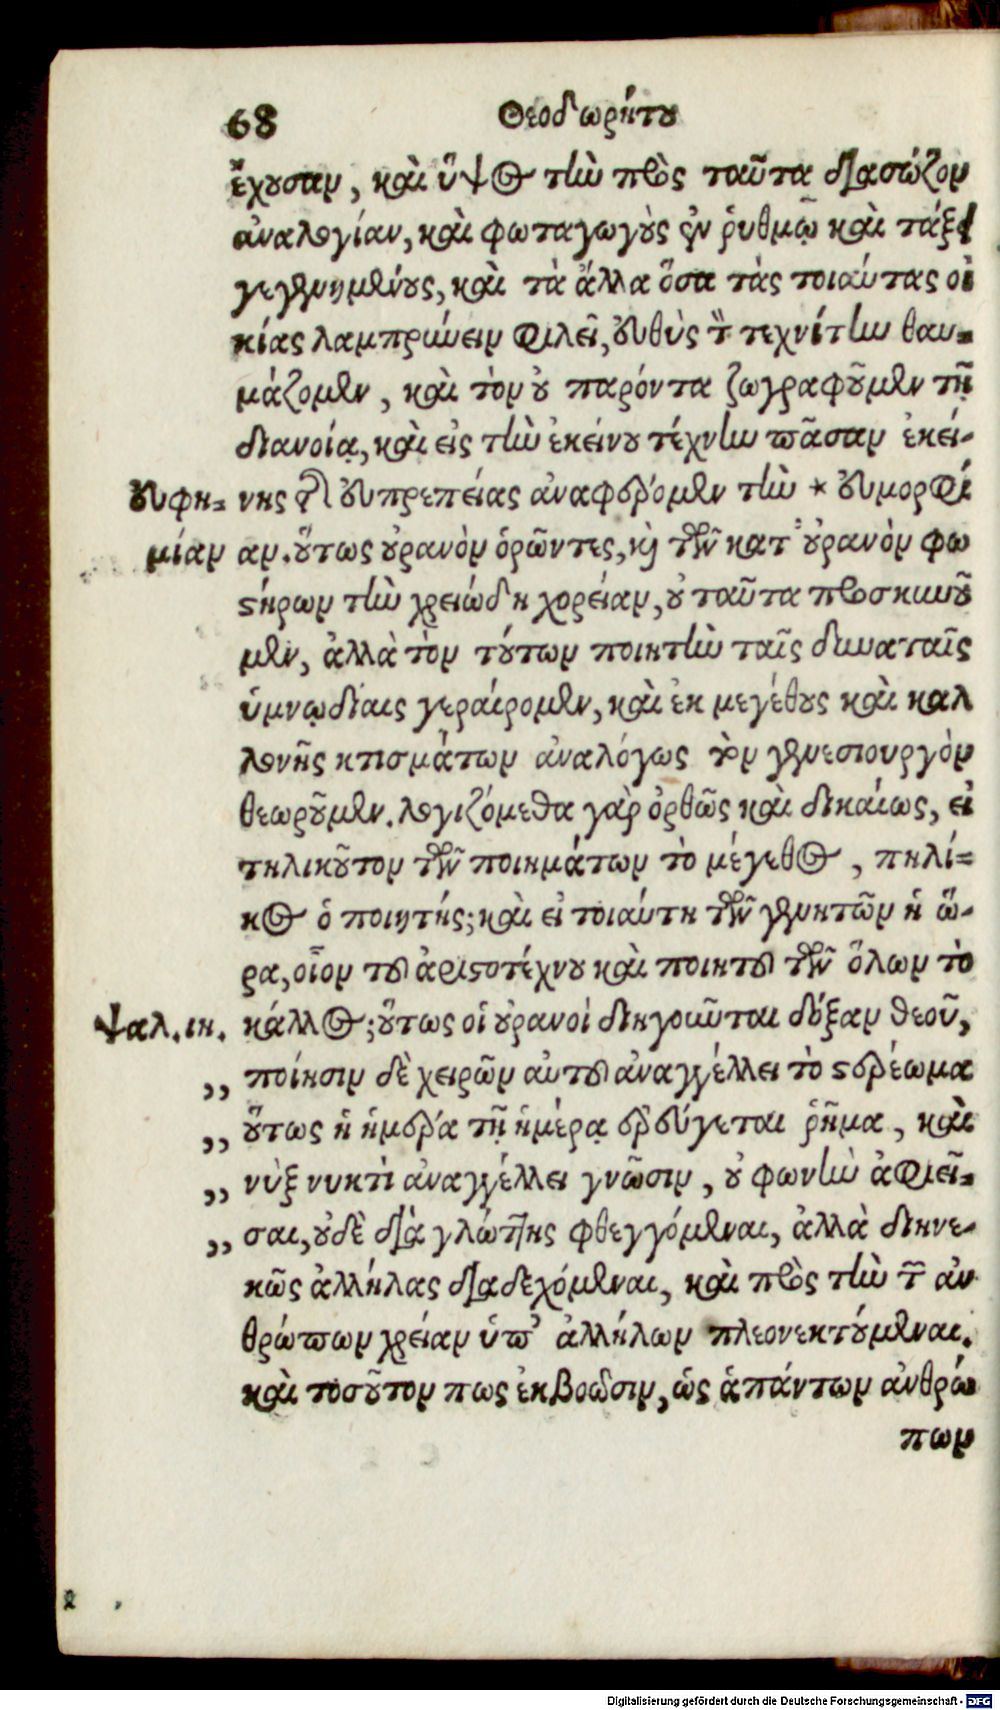 68 Θεοδωρήτου
ἔχουσαν, καὶ ὕψος τὴν πρὸς ταῦτα διασώζον
ἀναλογίαν, καὶ φωταγωγοὺς ἐν ῥυθμῷ καὶ τάξει
γεγενημένους, καὶ τὰ ἄλλα ὅσα τὰς τοιαύτας οἰ
κίας λαμπρύνειν φιλεῖ, εὐθὺς τὸν τεχνίτην θαυ=
μάζομεν, καὶ τὸν οὐ παρόντα ζωγραφοῦμεν τῇ
διανοίᾳ, καὶ εἰς τὴν ἐκείνου τέχνην πᾶσαν ἐκεί-
εὐφη= νης τῆς εὐπρεπείας ἀναφέρομεν τὴν * εὐμορφί
μίαν αν. οὕτως οὐρανὸν ὁρῶντες, καὶ τῶν κατ' οὐρανὸν φω
στήρων τὴν χρειώδη χορείαν, οὐ ταῦτα προσκυνοῦ
μεν, ἀλλὰ τὸν τούτων ποιητὴν ταῖς δυναταῖς
ὑμνῳδίαις γεραίρομεν, καὶ ἐκ μεγέθους καὶ καλ
λονῆς κτισμάτων ἀναλόγως τὸν γενεσιουργὸν
θεωροῦμεν. λογιζόμεθα γὰρ ὀρθῶς καὶ δικαίως, εἰ
τηλικοῦτον τῶν ποιημάτων τὸ μέγεθος, πηλί=
κος ὁ ποιητής; καὶ εἰ τοιαύτη τῶν γενητῶν ἡ ὥ-
ρα, οἷον τοῦ ἀριστοτέχνου καὶ ποιητοῦ τῶν ὅλων τὸ
ψαλ. ιη. κάλλος; οὕτως οἱ οὐρανοὶ διηγοῦνται δόξαν θεοῦ,
,, ποίησιν δὲ χειρῶν αὐτοῦ ἀναγγέλλει τὸ στερέωμα
,, οὕτως ἡ ἡμέρα τῇ ἡμέρᾳ ἐρεύγεται ῥῆμα, καὶ
,, νὺξ νυκτὶ ἀναγγέλλει γνῶσιν, οὐ φωνὴν ἀφιεῖ=
,, σαι, οὐδὲ διὰ γλώττης φθεγγόμεναι, ἀλλὰ διηνε-
κῶς ἀλλήλας διαδεχόμεναι, καὶ πρὸς τὴν τῶν ἀν
θρώπων χρείαν ὑπ' ἀλλήλων πλεονεκτούμεναι.
καὶ τοσοῦτον πως ἐκβοῶσιν, ὡς ἁπάντων ἀνθρώ
πων
Digitalisierung gefördert durch die Deutsche Forschungsgemeinschaft - DFG